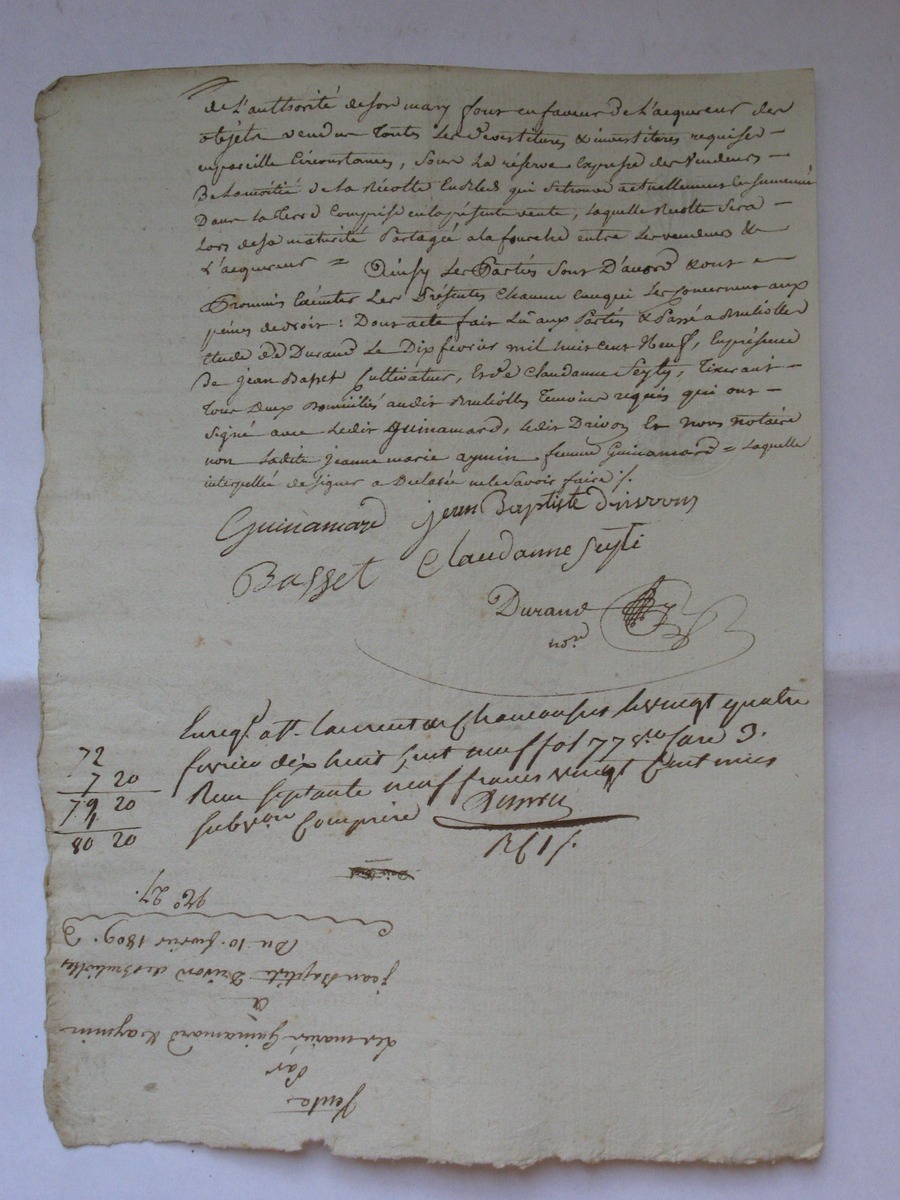 de L'authorité de son mary font en faveur de L'acquereur des
objets vendus Toutes Les devestitures & investitures requises
en pareille Circonstances, sous La réserve Expresse des Vendeurs
De La moitié de La Récolte En Bled qui se trouve actuellement
Dans la Terre Comprise en la présente vente, Laquelle Récolte Sera
Lors de sa maturité Partagée a la fourche entre Les vendeurs &
L'acquereur = Ainsy Les Parties Sont D'accord & ont
Promis Exécuter Les Présentes Chacune en ce qui Les Concernent aux
peines de droit : Dont acte fait Lû aux Parties & Passé a Brullioles
Etude de Durand Le Dix février mil huit cent Neuf, En présence
de jean Basset Cultivateur, Et de Claudanne Seyty, Tixerant
Tous Deux Domiciliés audit Brullioles Temoins requis qui ont
Signé avec Ledit Guinamard, Ledit Drivon Et nous notaire
non Ladite jeanne marie aymin femme Guinamard = Laquelle
interpellée de signer a Déclarée ne le Savoir faire ./.
Guinamard jean Baptiste Drivon
Basset Claudanne Seyti
Durand
no.re
Enreg.é a St. Laurent de Chamousset le vingt quatre
fevrier dix huit Cent neuf fol 77 v.so Case 3.
Reçu septante neuf francs vingt Centimes
subv.on Comprise
72
7 20
79 20
1
80 20
N.o 27.
Du 10. fevrier 1809.
jean Baptiste Drivon de Brullioles
a
les mariés Guinamard & aymin
Par
Vente